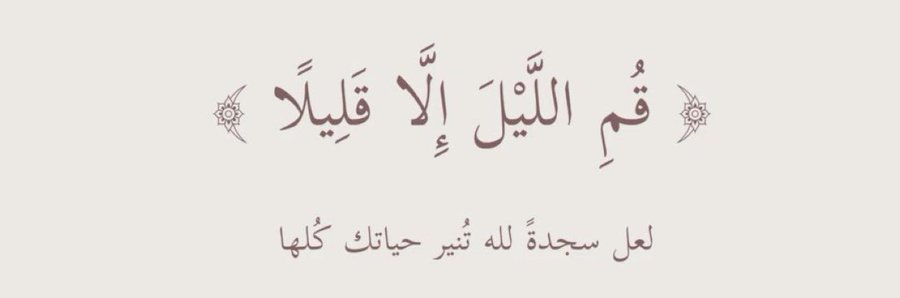 ﴿ قُمِ اللَّيْلَ إِلَّا قَلِيلًا ﴾
لعل سجدةً لله تُنير حياتك كُلها